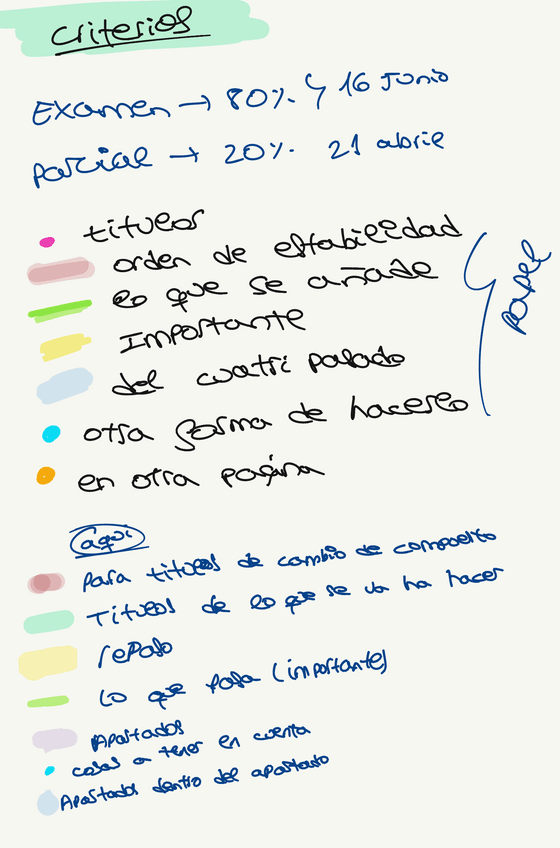 criterios
Examen → 80% ↳ 16 Junio
parcial → 20% 21 abril
titulos
orden de estabilidad
lo que se añade
Importante
del cuatri pasado
otra forma de hacerlo
en otra pagina
papel
aqui
para titulos de cambio de compuesto
Titulos de lo que se va ha hacer
repaso
Lo que pasa (importante)
Apartados
cosas a tener en cuenta
Apartados dentro del apartado